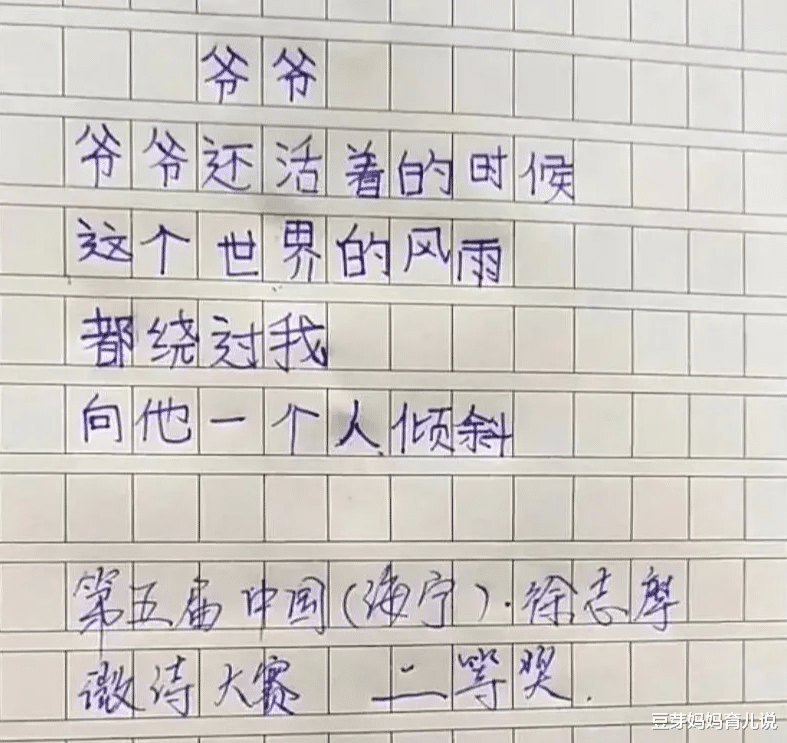 爷爷
爷爷还活着的时候
这个世界的风雨
都绕过我
向他一个人倾斜
第五届中国(海宁)·徐志摩
微诗大赛 二等奖.
豆芽妈妈育儿说